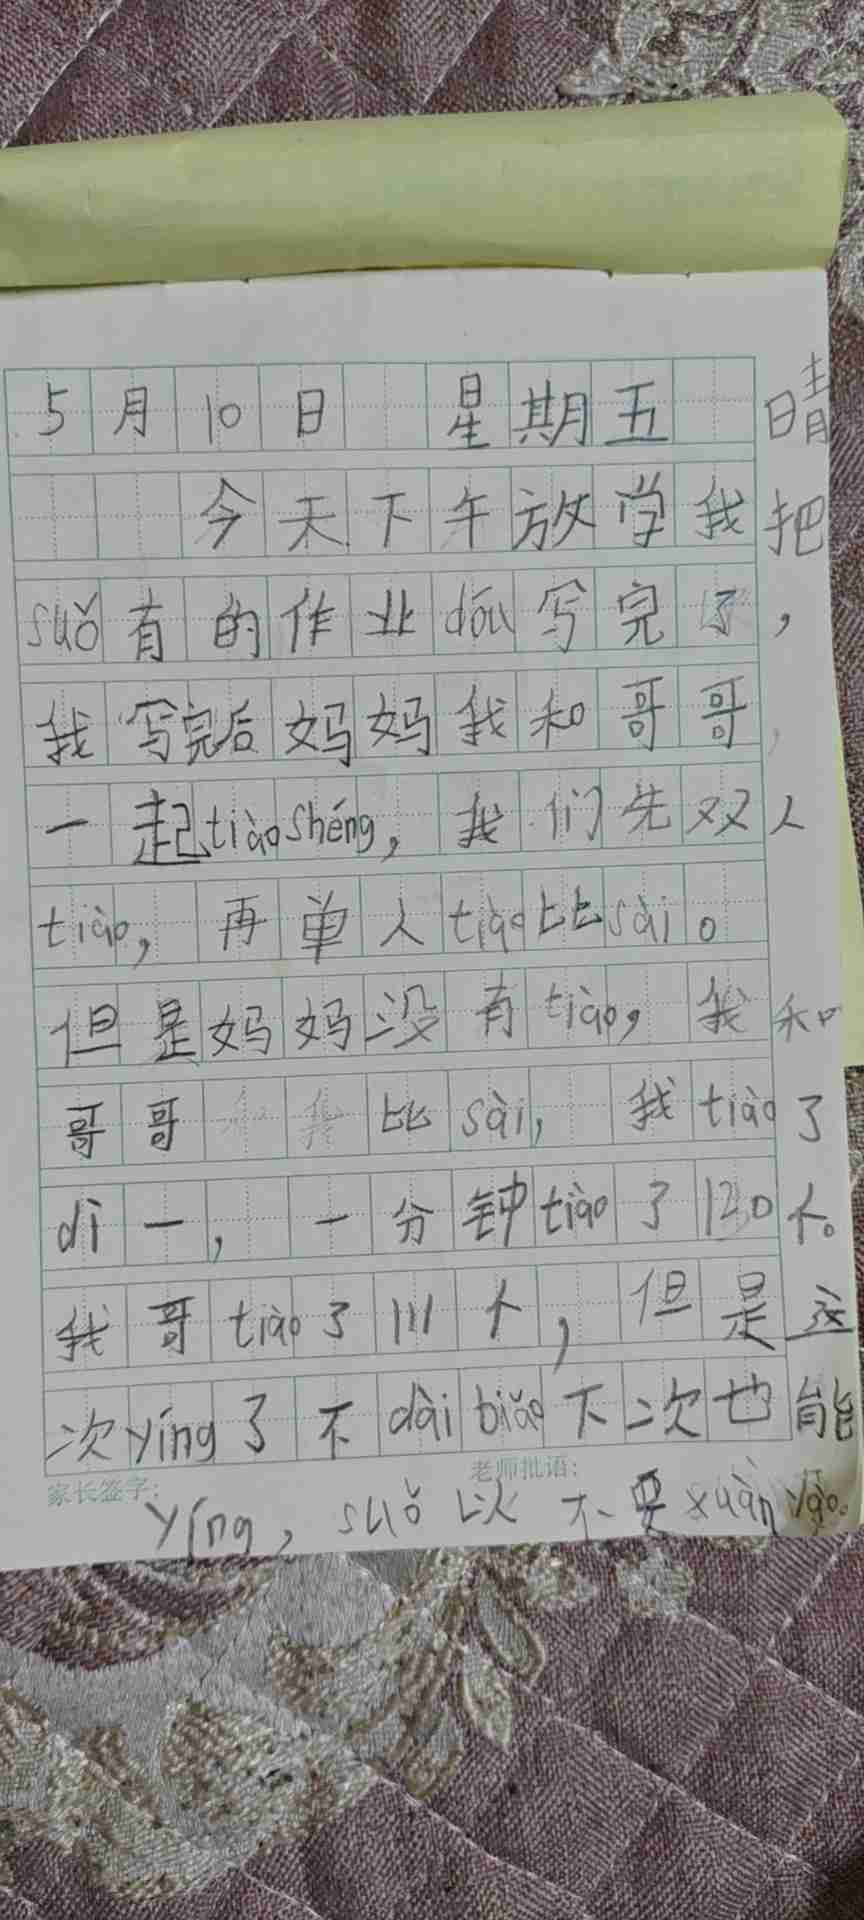 5月10日 星期五 晴
今天下午放学我把
suǒ有的作业dōu写完了，
我写完后妈妈我和哥哥，
一起tiàoshéng，我们先双人
tiào，再单人tiào比sài。
但是妈妈没有tiào，我和
哥哥比sài，我tiào了
dì一，一分钟tiào了120个。
我哥tiào了111个，但是这
次yíng了不dàibiǎo下次也能
家长签字： 老师批语：
yíng，suǒ以不要xuànyào。